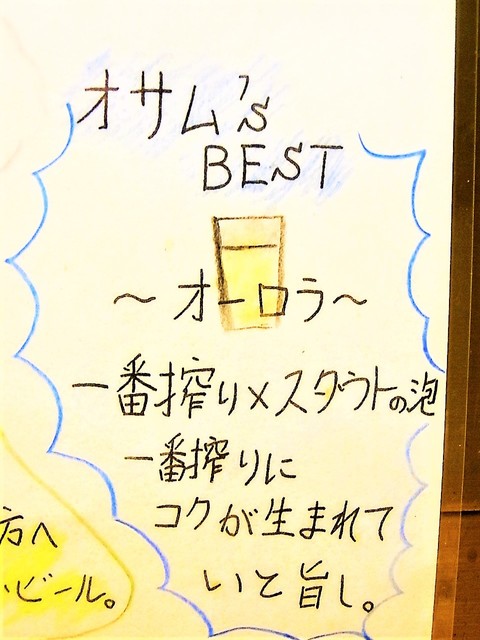 オサム's
BEST
～オーロラ～
一番搾り×スタウトの泡
一番搾りに
コクが生まれて
いと旨し。
方へ
ビール。